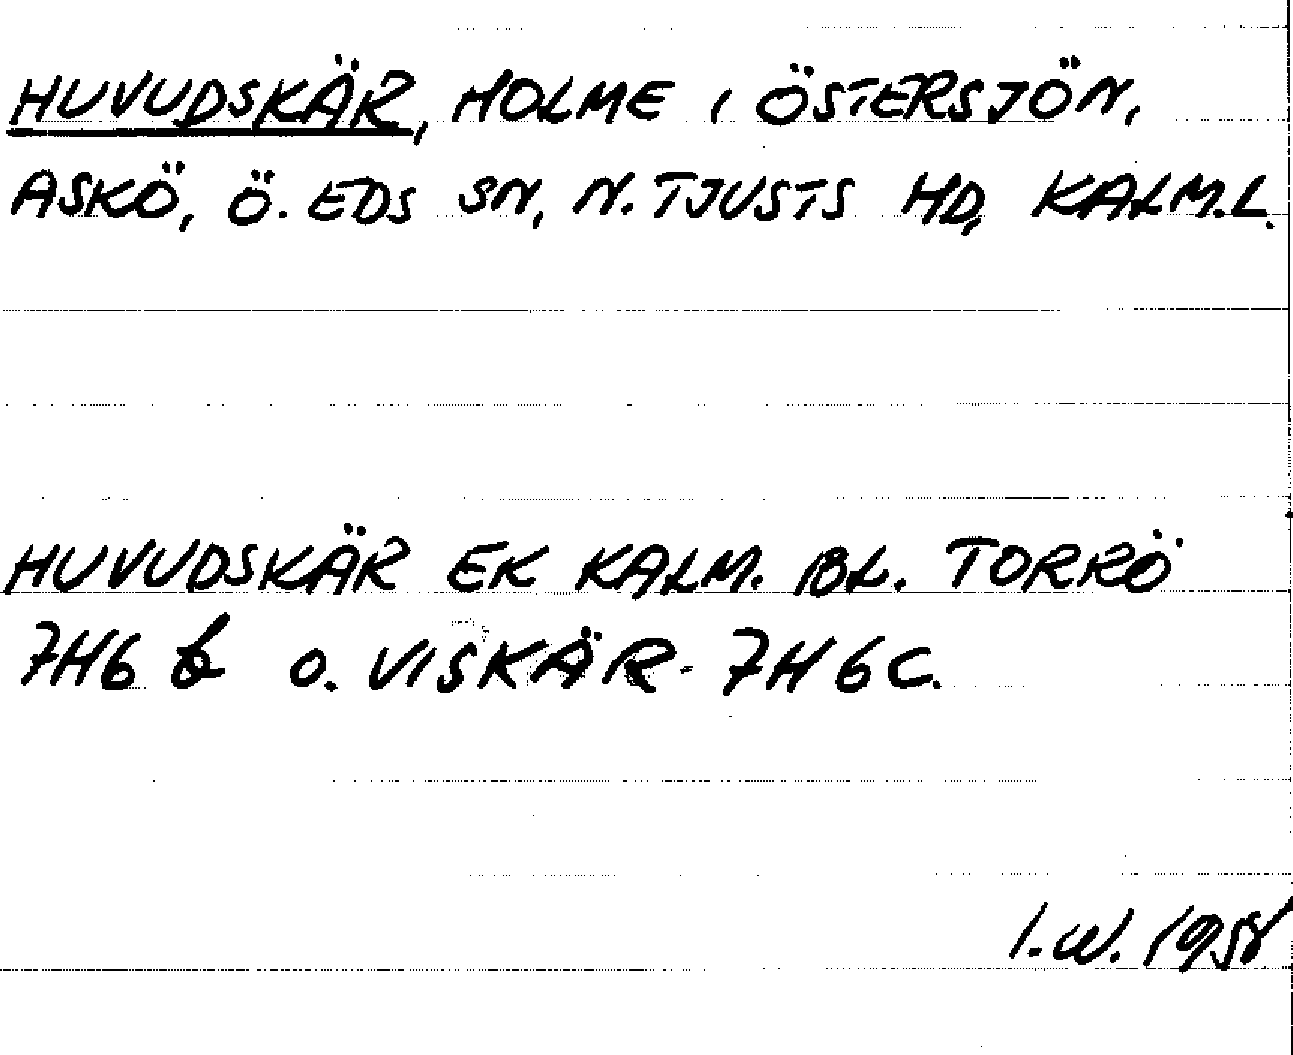 HUVUDSKÄR, HOLME I ÖSTERSJÖN,
ASKÖ, Ö. EDS SN, N. TJUSTS HD, KALM.L.
HUVUDSKÄR EK KALM. BL. TORRÖ
7H6 b O. VISKÄR 7H6C.
I.W. 1958